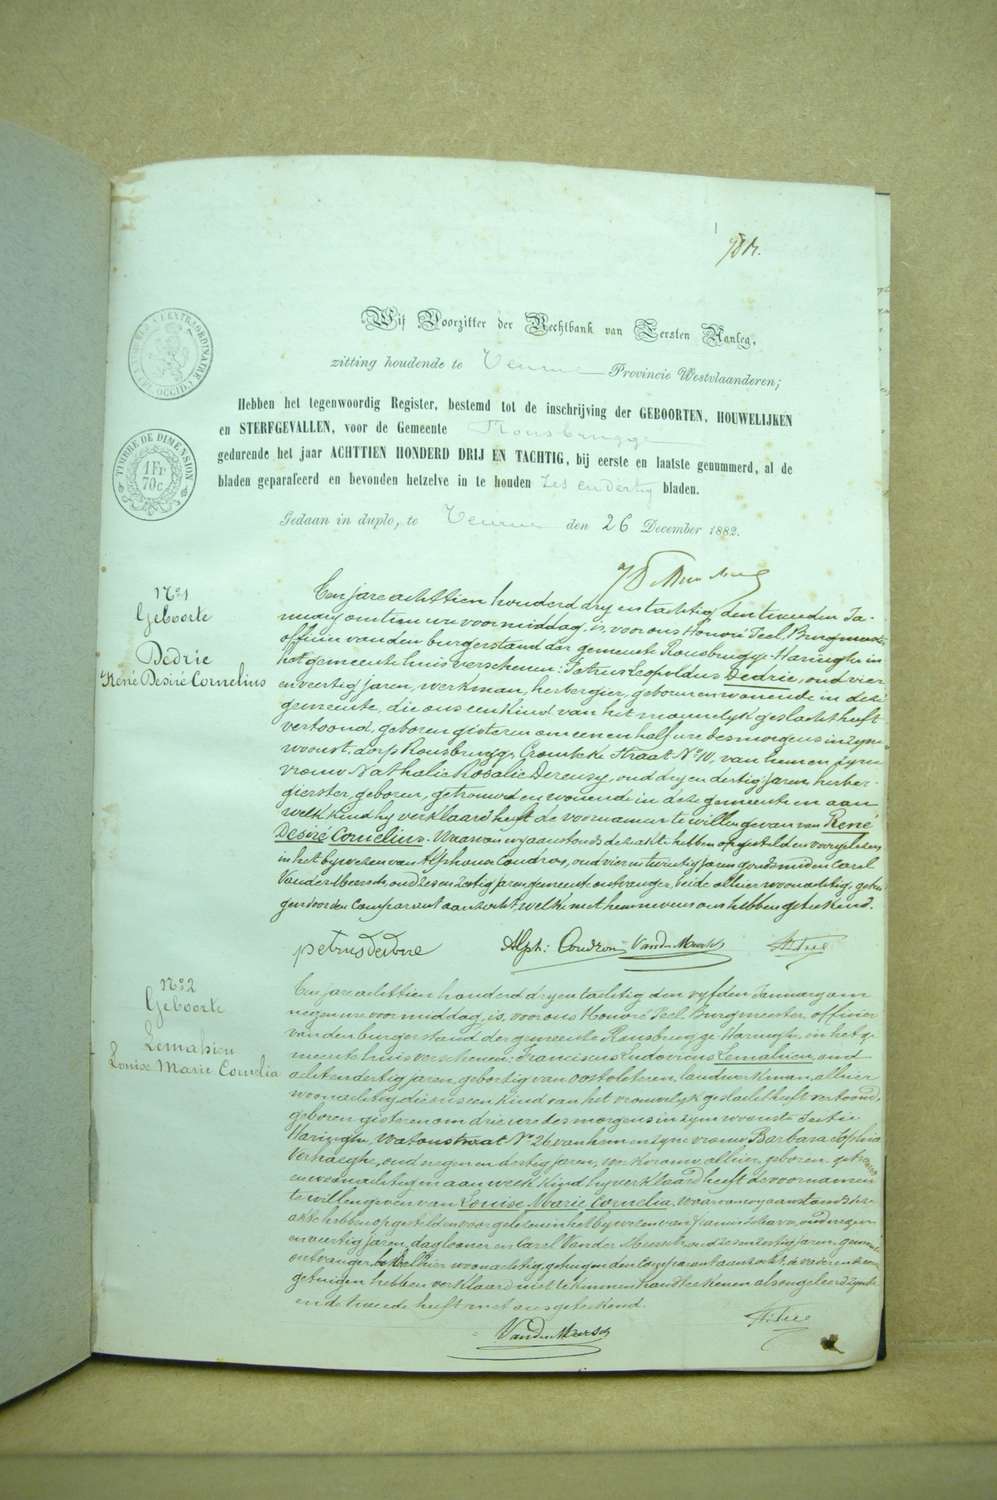 Wij Voorzitter der Rechtbank van Eersten Aanleg,
zitting houdende te Veurne Provincie Westvlaanderen;
Hebben het tegenwoordig Register, bestemd tot de inschrijving der GEBOORTEN, HOUWELIJKEN
en STERFGEVALLEN, voor de Gemeente Rousbrugge
gedurende het jaar ACHTTIEN HONDERD DRIJ EN TACHTIG, bij eerste en laatste genummerd, al de
bladen geparafeerd en bevonden hetzelve in te houden zes en dertig bladen.
Gedaan in duplo, te Veurne den 26 December 1882.
TIMBRE DE DIMENSION
1 Fr
70c
N° 1
Geboorte
Dedrie
René Desiré Cornelius
Een jare achttien honderd dry en tachtig den tweeden Ja-
nuary om tien ure voormiddag, is, voor ons Honoré Teel, Burgmeester
officier van den burgerstand der gemeente Rousbrugge-Haringhe in
het gemeentehuis verschenen: Petrus Leopoldus Dedrie, oud vier
en veertig jaren, werkman, herbergier, geboren en wonende in deze
gemeente, die ons een kind van het mannelyk geslacht heeft
vertoond, geboren gisteren om een en half ure des morgens in zyne
woonst, dorp Rousbrugge, Crombeke Straat N° 10, van hem en zyne
vrouw Nathalie Rosalie Dereusy, oud dry en dertig jaren, herber-
gierster, geboren, getrouwd en wonende in deze gemeente en aan
welk kind hy verklaard heeft de voornamen te willen geven van René
Desiré Cornelius. Waarvan wy aanstonds deze akte hebben opgesteld en voorgelezen
in het bywezen van Alphonse Coudron, oud vier en twintig jaren, goudsmid en Carel
Vander Meersch, oud zes en zestig jaren gemeente ontvanger, beide alhier woonachtig, getui
gen door den Comparant aanzocht, welke met hem nevens ons hebben geteekend.
petrus dedrie Alph: Coudron VanderMeersch H. Teel
N° 2
Geboorte
Lemahieu
Louise Marie Cornelia
Een jare achttien honderd dry en tachtig den vyfden January om
negen ure voormiddag, is, voor ons Honoré Teel, Burgmeester, officier
van den burgerstand der gemeente Rousbrugge-Haringhe, in het ge-
meentehuis verschenen: Franciscus Ludovicus Lemahieu, oud
acht en dertig jaren, geboortig van Oostvleteren, landwerkman, alhier
woonachtig, die ons een kind van het vrouwelyk geslacht heeft vertoond,
geboren gisteren om drie ure des morgens in zyne woonst
Haringhe, Watoustraat N° 26 van hem en zyne vrouw Barbara Sophia
Verhaeghe, oud negen en dertig jaren, alhier geboren, getrouwd
en woonachtig en aan welk kind hy verklaard heeft de voornamen
te willen geven van Louise Marie Cornelia. Waarvan wy aanstonds deze
akte hebben opgesteld en voorgelezen in het bywezen van oud negen
en veertig jaren, daglooner en Carel Vander Meersch oud zes en zestig jaren, gemeente
ontvanger, beide alhier woonachtig, getuigen door den Comparant aanzocht,
getuigen hebben verklaard niet te kunnen handteekenen als ongeleerd zynde
en de tweede heeft met ons geteekend.
VanderMeersch H. Teel